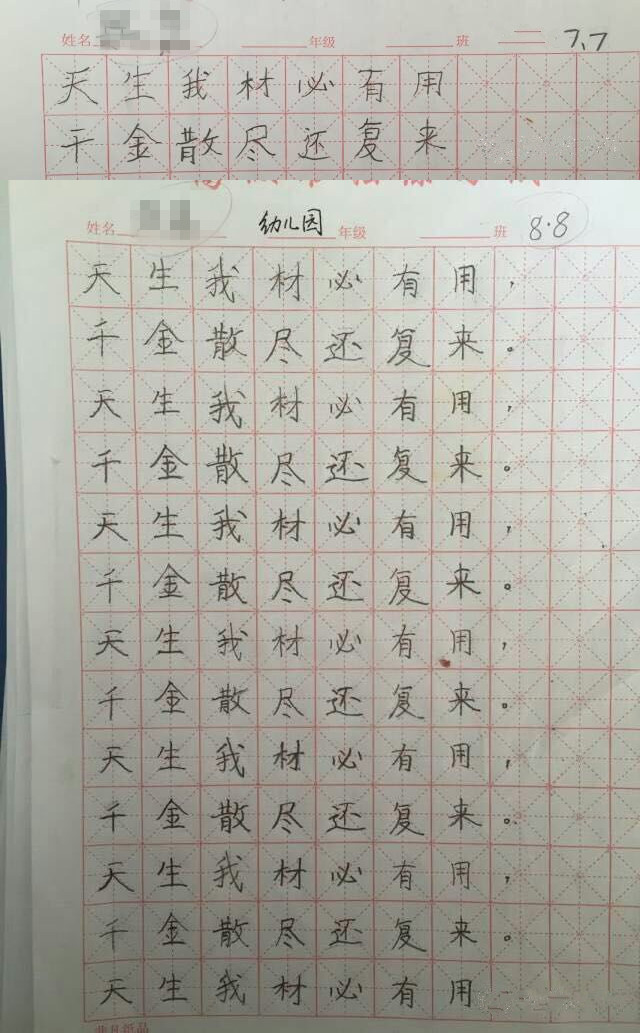 姓名 年级 班 二 7.7
天生我材必有用
千金散尽还复来
姓名 幼儿园 年级 班 8.8
天生我材必有用，
千金散尽还复来。
天生我材必有用，
千金散尽还复来。
天生我材必有用，
千金散尽还复来。
天生我材必有用，
千金散尽还复来。
天生我材必有用，
千金散尽还复来。
天生我材必有用，
千金散尽还复来。
天生我材必有用